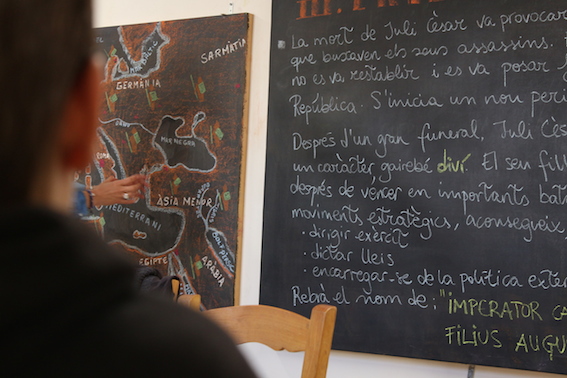 MAR BÀLTIC
SARMÀTIA
GERMÀNIA
MAR NEGRE
ROMA
ÀSIA MENOR
MEDITERRANI
GOLF PÈRSIC
EGIPTE
ARÀBIA
III.
La mort de Juli Cèsar va provocar
que buscaven els seus assassins.
no es va restablir i es va posar
República. S'inicia un nou perí
Després d'un gran funeral, Juli Cès
un caràcter gairebé diví. El seu fill
després de vèncer en importants bat
moviments estratègics, aconsegueix
· dirigir exèrcit
· dictar lleis
· encarregar-se de la política exter
Rebrà el nom de: "IMPERATOR CA
FILIUS AUGU